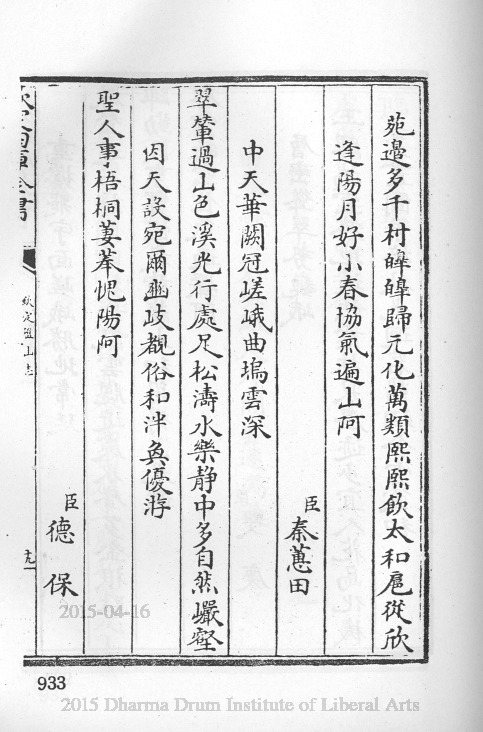 苑邊多千村皡皡歸元化萬類熙熙飲太和扈從欣
逢陽月好小春協氣遍山阿
臣秦蕙田
中天華闕冠嵯峨曲塢雲深
翠輦過山色溪光行處足松濤水樂静中多自然巖壑
因天設宛爾豳岐覩俗和泮奐優游
聖人事梧桐萋菶愧陽阿
臣德保
欽定四庫全書
欽定盤山志
933
2015-04-16
2015 Dharma Drum Institute of Liberal Arts